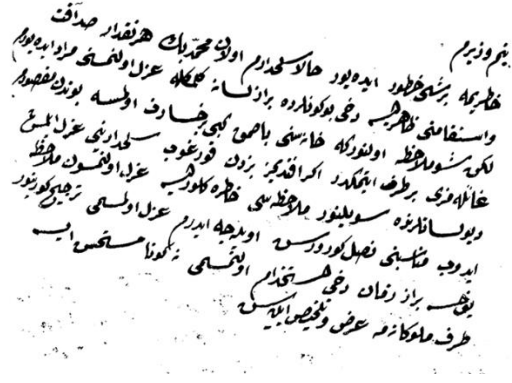 بنم وزيرم
خاطريمه برشى خطور ايده‌يور حالا سلحدارم اولان محمد بك هر نقدر صداقت
واستقامتى ظاهر ايسه دخى بوكونلرده براز لسانه كلمكله عزل اولنمسنى مراد ايده‌يورم
لكن شو ملاحظه اولنور كه خانه‌سنى باصمق كبى اولمسه بوندن مقصودم
غائله‌مزى برطرف ايتمكدر اكر افنديمز بزدن قورقوب سلحدارينى عزل ايلمش
ديو لسانلرده سويلنور ملاحظه‌سى خاطره كلور ايسه عزل اولنمسون ملاحظه
ايدوب مناسبنى نصل كورورسن اويله‌جه ايدرم عزل اولنمسى ترجيح كورينور
يوخسه براز زمان دخى استخدام اولنمسى نه كونا مستحسن ايسه
طرف ملوكانه‌مه عرض وتلخيص ايليه‌سن